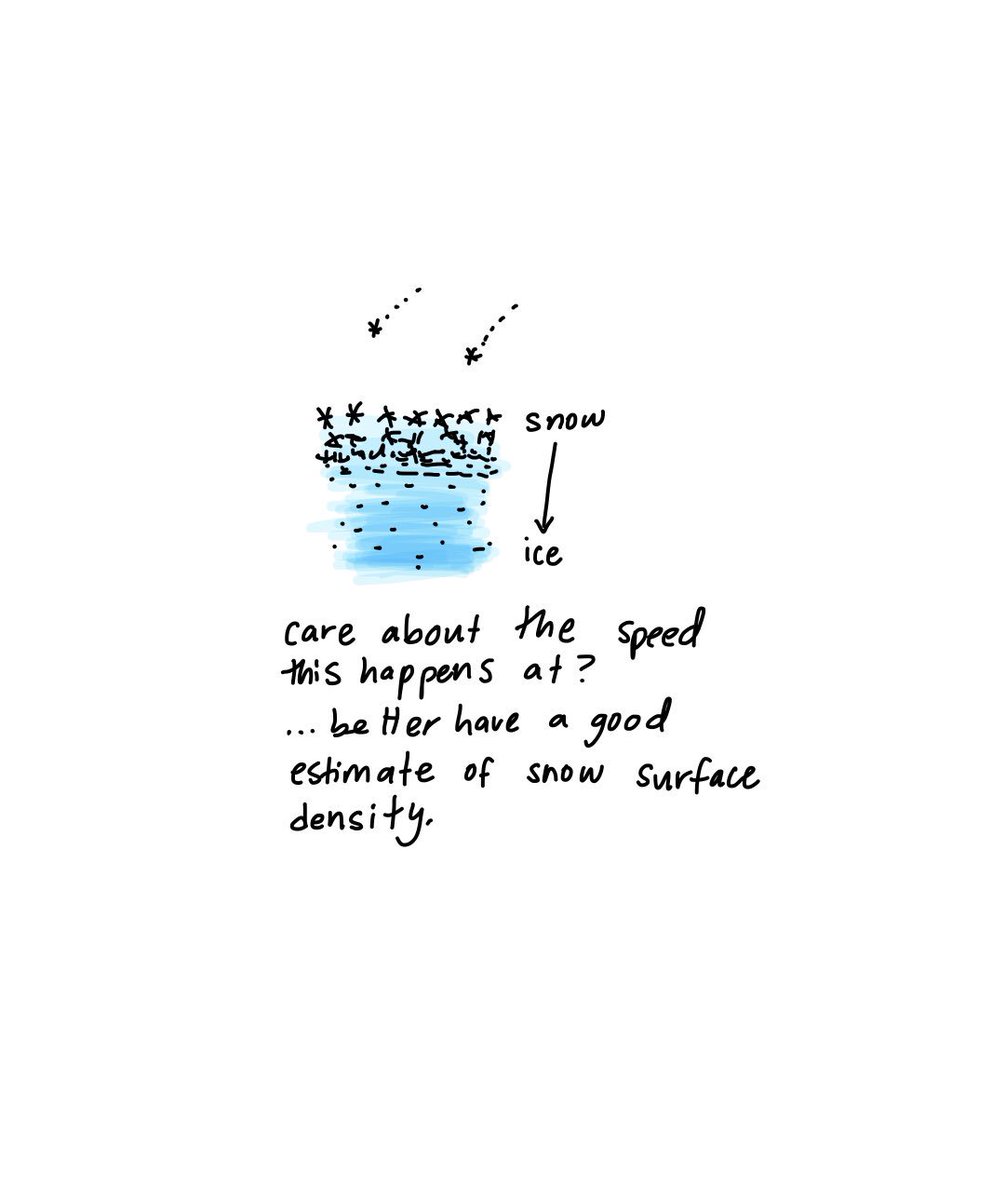 snow
ice
care about the speed
this happens at?
... better have a good
estimate of snow surface
density.